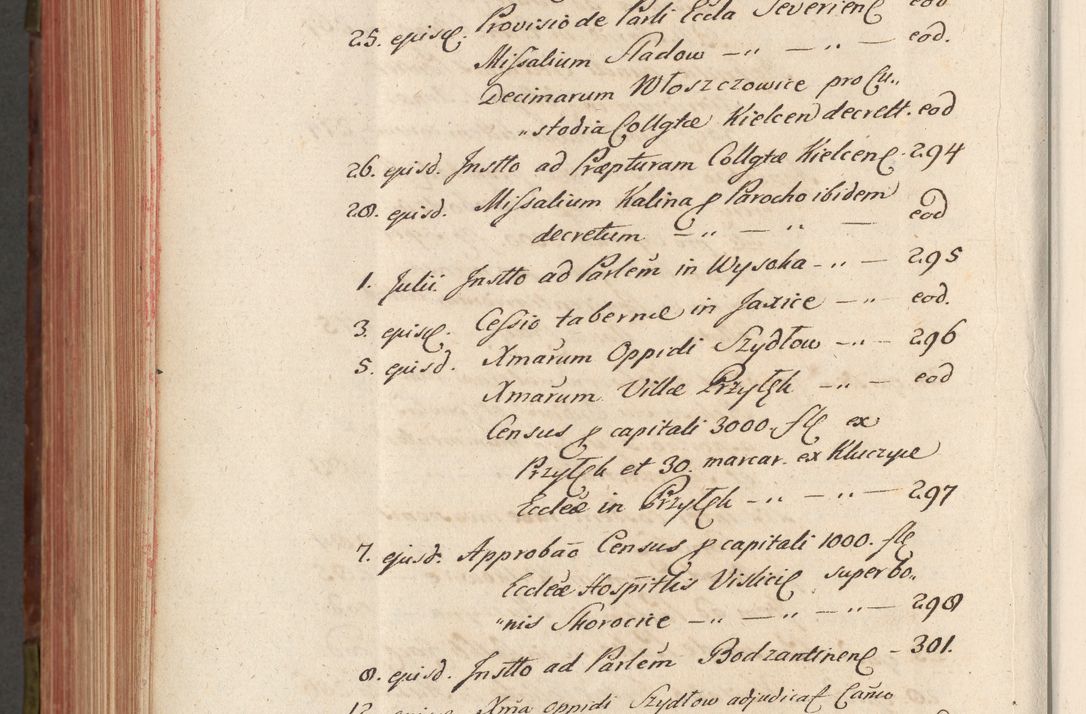 25. ejusd. Provisio de Parli Eccla Severien eod
Missalium Sladow — „ — „ — eod.
Decimarum Włoszczowice pro Cu„
„stodia Collgtæ Kielcen decrett. eod
26. ejusd. Instto ad Præpturam Collgtæ Kielcen. 294
28. ejusd. Missalium Kalina p Parocho ibidem
decretum — „ — „ — eod
1. Julii. Instto ad Parlem in Wysoka - „ — 295
3. ejusd. Cessio tabernæ in Jaxice — „ — eod.
5. ejusd. Xmarum Oppidi Szydłow — „ — 296
Xmarum Villæ Przyłęk — „ — eod
Census p capitali 3000. fl ex
Przyłęk et 30. marcar. ex Kluczyce
Ecclæ in Przyłęk — „ — „ — 297
7. ejusd. Approbao Census p capitali 1000. fl
Ecclæ Hospitlis Vislici super bo„
„nis Skorocice — „ — „ — „ — 298
8. ejusd. Instto ad Parlem Bodzantinen — 301.
12. ejusd. Xma oppidi Szydłow adjudicat